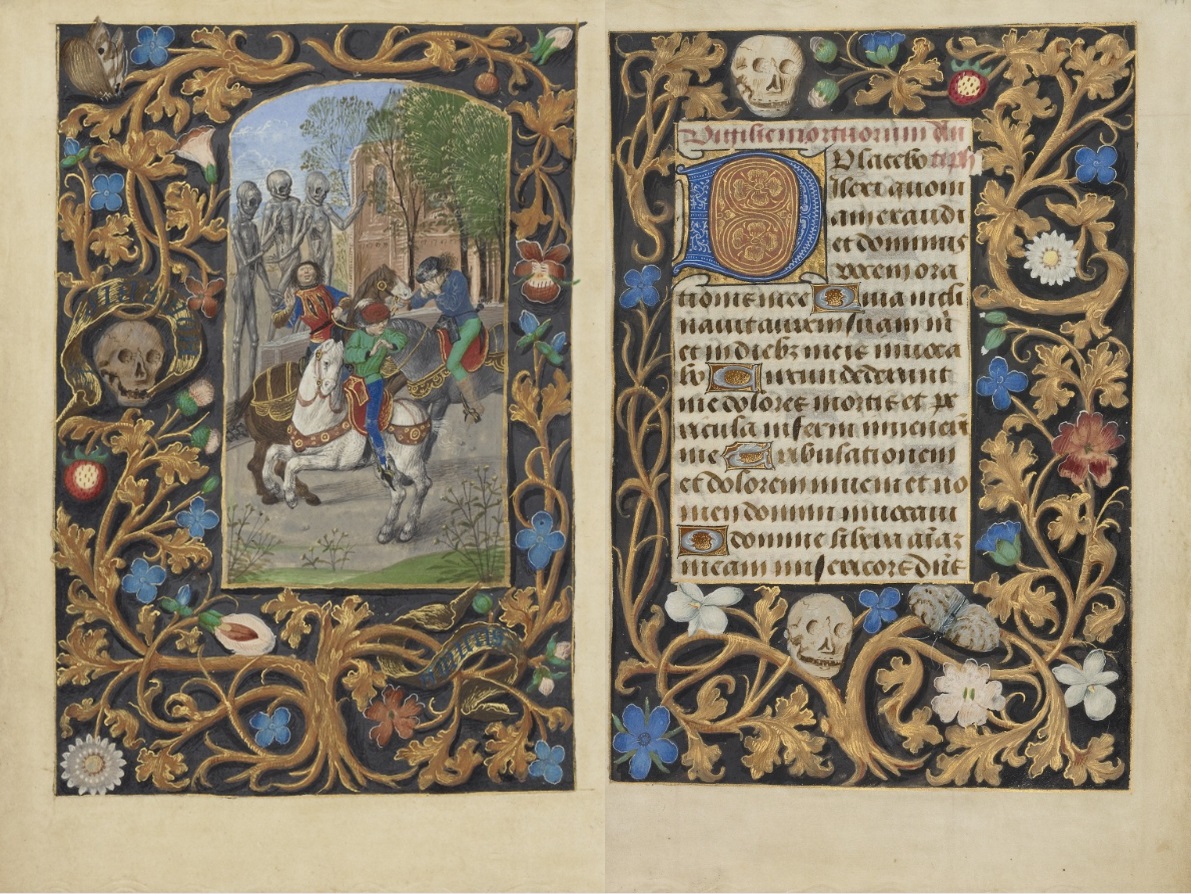 Vigilie mortuorum Añ
Placebo
Dilexi quoni
am exaudi
et dominus
vocem ora
tionis mee Quia incli
nauit aurem suam m̄
et in diebꝫ meis inuoca
bo Circundederunt
me dolores mortis et pe
ricula inferni inuener̄
me Tribulationem
et dolorem inueni et no
men domini inuocaui
O domine libera aīaꝫ
meam misericors dn̄s